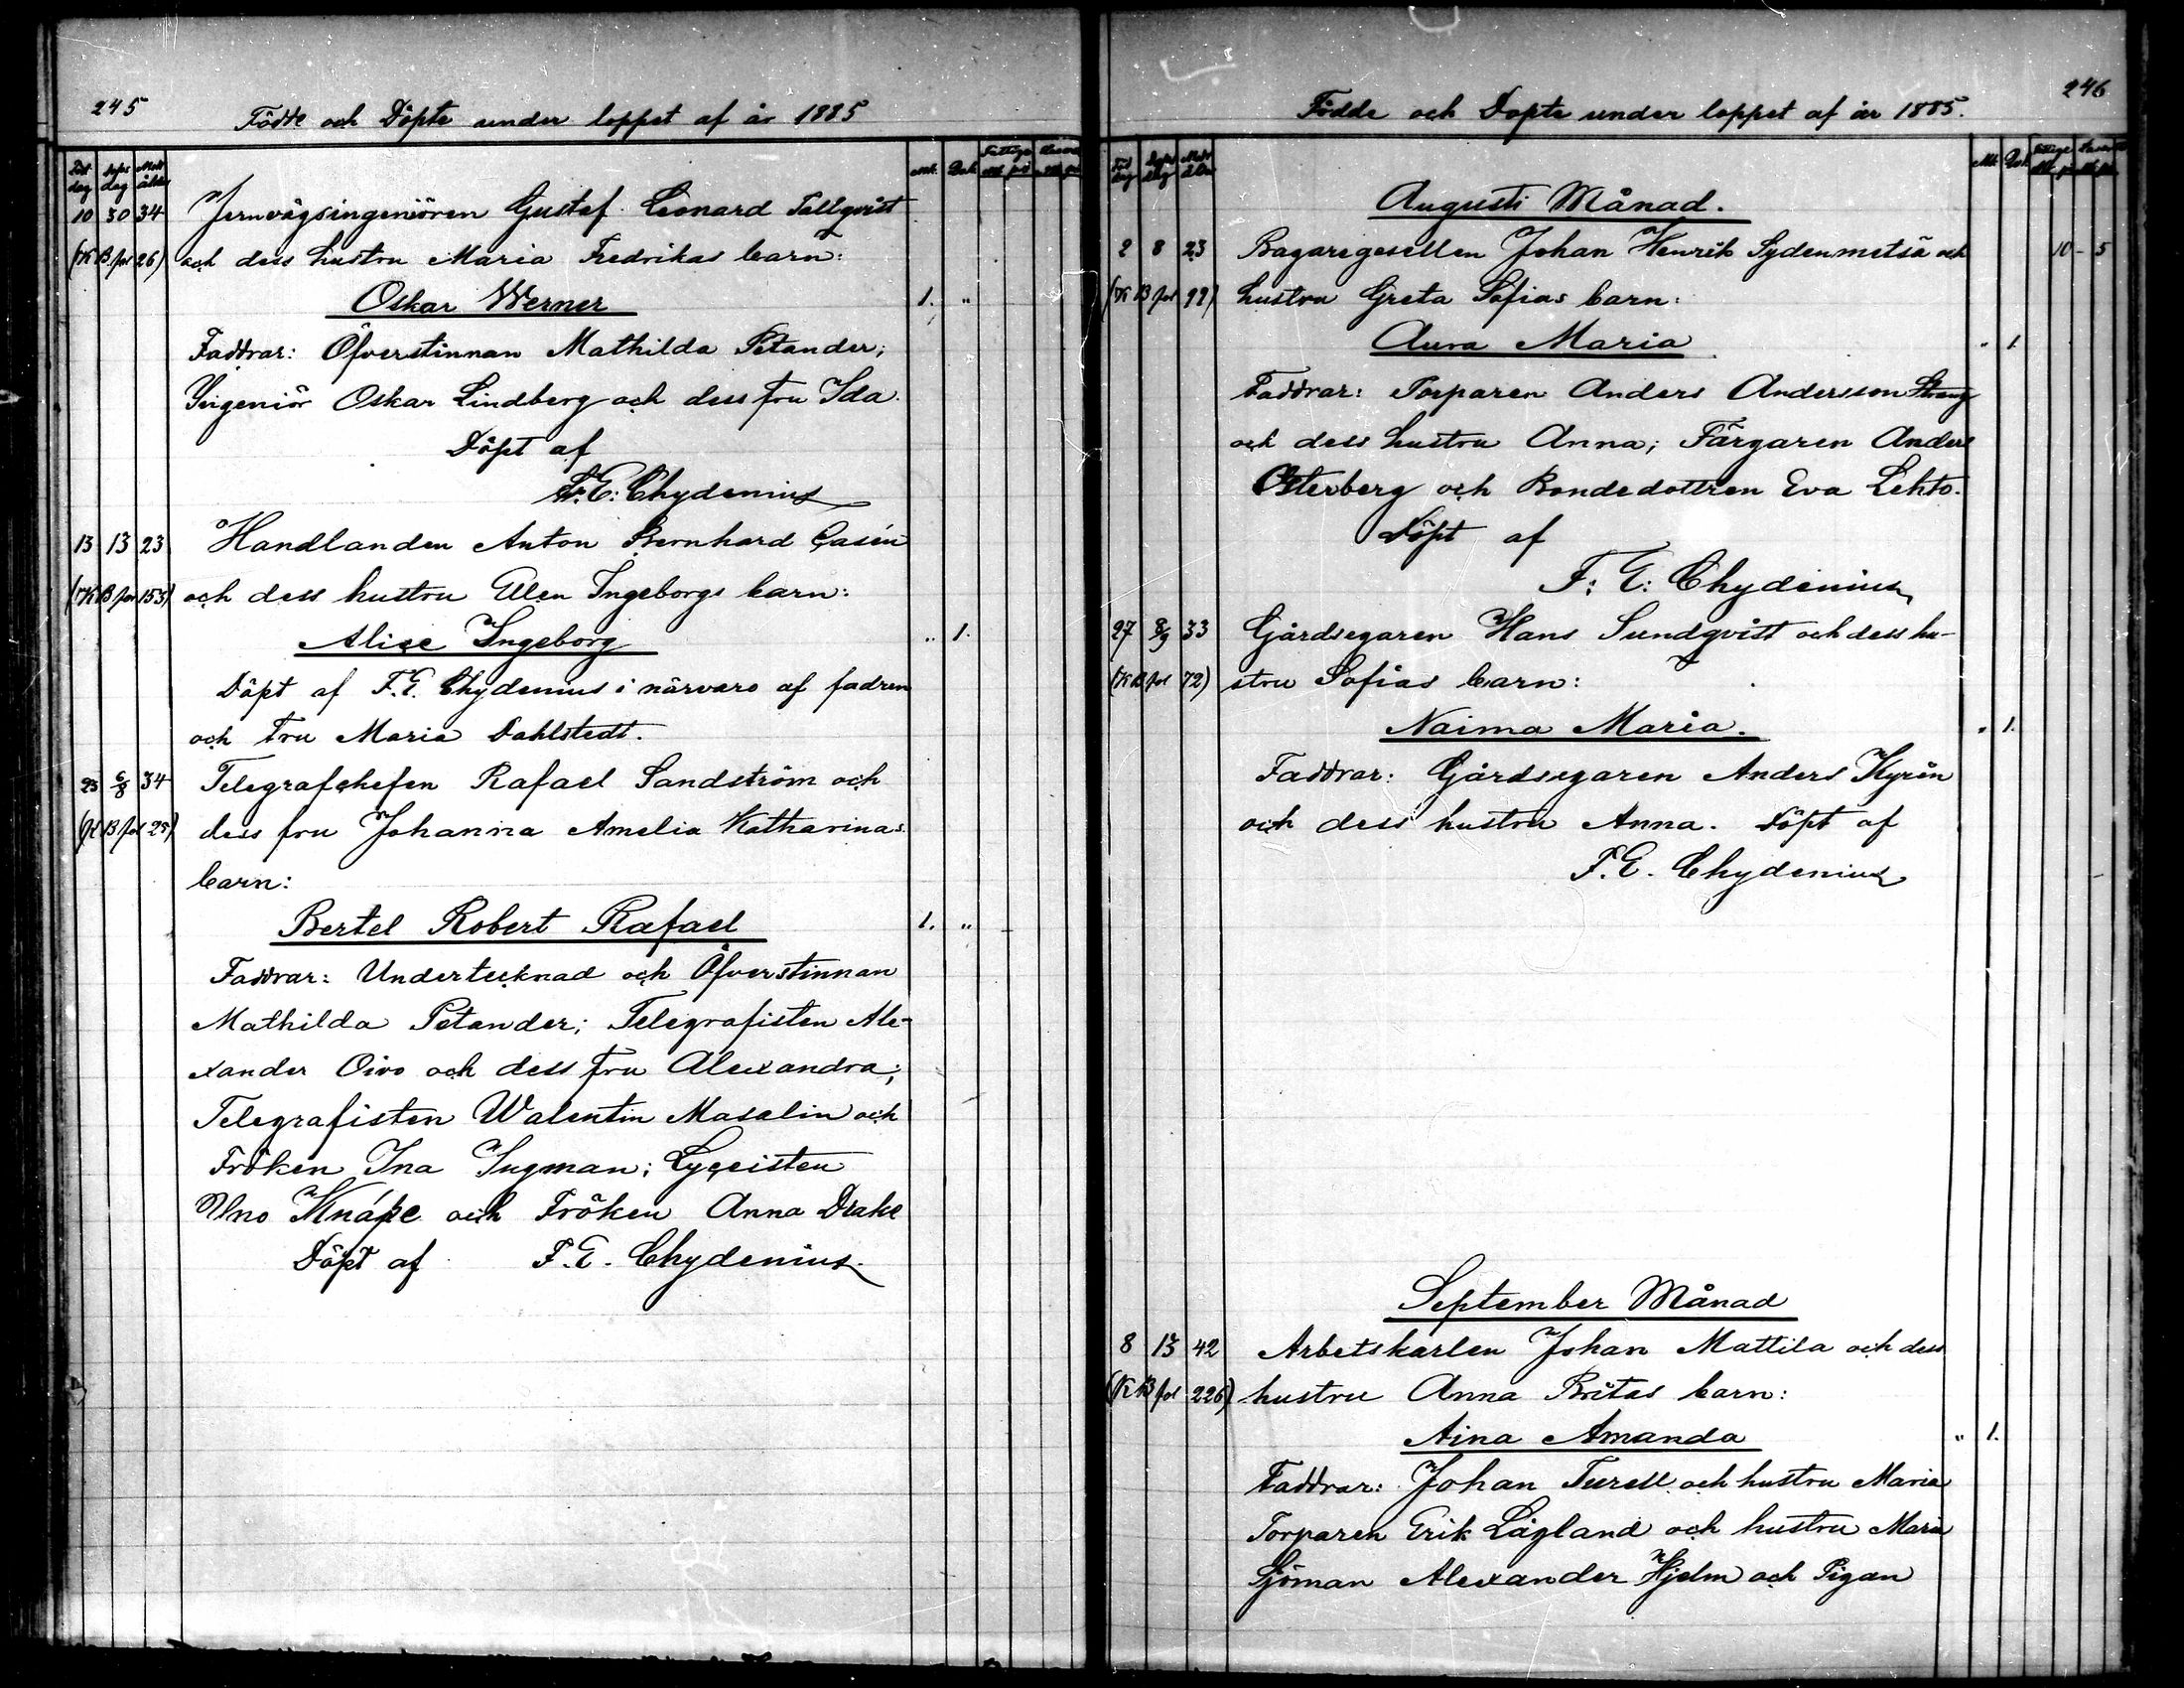 245
Födde och Döpte under loppet af år 1885
Född dag Döpt dag Modr ålder Mk. Qvk.
10 30 34 Jernvägsingeniören Gustaf Leonard Tallqvist
(K B fol 26) och dess hustru Maria Fredrikas barn:
Oskar Werner 1. "
Faddrar: Öfverstinnan Mathilda Petander;
Ingeniör Oskar Lindberg och dess fru Ida.
Döpt af
F. E: Chydenius
13 13 23 Handlanden Anton Bernhard Casén
(K B fol 153) och dess hustru Elen Ingeborgs barn:
Alice Ingeborg " 1.
Döpt af F. E. Chydenius i närvaro af fadren
och Fru Maria Dahlstedt.
23 6/8 34 Telegrafchefen Rafael Sandström och
(K B fol 25) dess fru Johanna Amelia Katharinas
barn:
Bertel Robert Rafael 1. "
Faddrar: Undertecknad och Öfverstinnan
Mathilda Petander; Telegrafisten Ale-
xander Oivo och dess fru Alexandra;
Telegrafisten Walentin Masalin och
Fröken Ina Ingman; Lyceisten
Uno Knape och Fröken Anna Drake
Döpt af F. E. Chydenius.
246
Födde och Döpte under loppet af år 1885.
Född dag Döpt dag Modr ålder Mk Qvk
Augusti Månad.
2 8 23 Bagaregesellen Johan Henrik Sydenmetsä och 10 - 5
(K B fol 99) hustru Greta Sofias barn:
Aura Maria " 1
Faddrar: Torparen Anders Andersson Strang
och dess hustru Anna; Färgaren Anders
Österberg och Bondedottren Eva Lehto.
Döpt af
F: E: Chydenius
27 8/9 33 Gårdsegaren Hans Sundqvist och dess hu-
(K B fol 72) stru Sofias barn:
Naima Maria. " 1.
Faddrar: Gårdsegaren Anders Kyrén
och dess hustru Anna. Döpt af
F. E. Chydenius
September Månad
8 13 42 Arbetskarlen Johan Mattila och dess
(K B fol 226) hustru Anna Britas barn:
Aina Amanda " 1.
Faddrar: Johan Turell och hustru Maria
Torparen Erik Lågland och hustru Maria
Sjöman Alexander Hjelm och Pigan